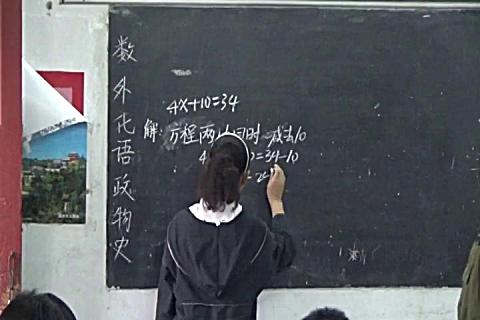 数
外
化
语
政
物
史
4x+10=34
解:方程两 同时 减去10
4 =34-10
=24